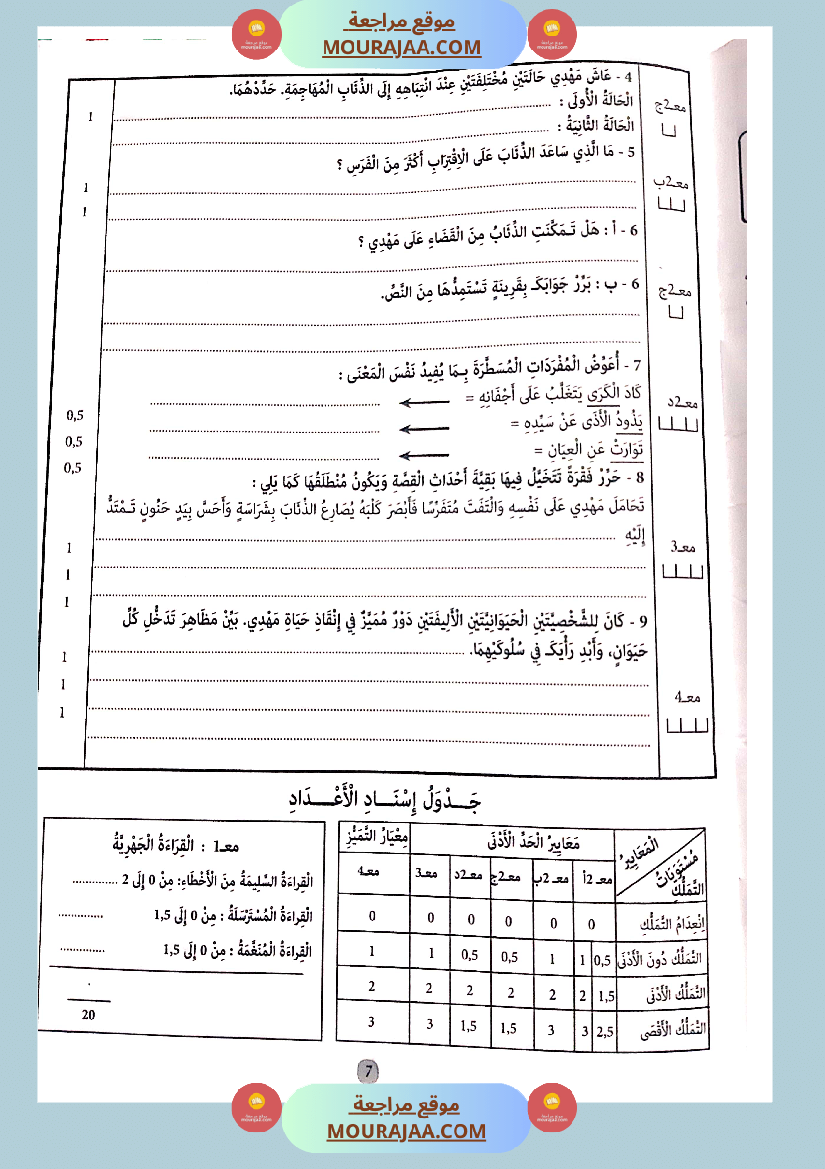 موقع مراجعة
MOURAJAA.COM
4 - عَاشَ مَهْدِي حَالَتَيْنِ مُخْتَلِفَتَيْنِ عِنْدَ انْتِبَاهِهِ إِلَى الذِّئَابِ الْمُهَاجِمَةِ. حَدِّدْهُمَا.
معـ2ج
الْحَالَةُ الْأُولَى :
1
الْحَالَةُ الثَّانِيَةُ :
5 - مَا الَّذِي سَاعَدَ الذِّئَابَ عَلَى الْاِقْتِرَابِ أَكْثَرَ مِنَ الْفَرَسِ ؟
معـ2ب
1
1
6 - أ : هَلْ تَـمَكَّنَتِ الذِّئَابُ مِنَ الْقَضَاءِ عَلَى مَهْدِي ؟
6 - ب : بَرِّرْ جَوَابَكَـ بِقَرِينَةٍ تَسْتَمِدُّهَا مِنَ النَّصِّ.
معـ2ج
7 - أُعَوِّضُ الْمُفْرَدَاتِ الْمُسَطَّرَةَ بِـمَا يُفِيدُ نَفْسَ الْمَعْنَى :
معـ2د
كَادَ الْكَرَى يَتَغَلَّبُ عَلَى أَجْفَانِهِ =
0,5
يَذُودُ الْأَذَى عَنْ سَيِّدِهِ =
0,5
تَوَارَتْ عَنِ الْعِيَانِ =
0,5
8 - حَرِّرْ فَقْرَةً تَتَخَيَّلُ فِيهَا بَقِيَّةَ أَحْدَاثِ الْقِصَّةِ وَيَكُونُ مُنْطَلَقُهَا كَمَا يَلِي :
تَحَامَلَ مَهْدِي عَلَى نَفْسِهِ وَالْتَفَتَ مُتَفَرِّسًا فَأَبْصَرَ كَلْبَهُ يُصَارِعُ الذِّئَابَ بِشَرَاسَةٍ وَأَحَسَّ بِيَدٍ حَنُونٍ تَـمْتَدُّ
إِلَيْهِ
معـ3
1
1
1
9 - كَانَ لِلشَّخْصِيَّتَيْنِ الْحَيَوَانِيَّتَيْنِ الْأَلِيفَتَيْنِ دَوْرٌ مُمَيَّزٌ فِي إِنْقَاذِ حَيَاةِ مَهْدِي. بَيِّنْ مَظَاهِرَ تَدَخُّلِ كُلِّ
حَيَوَانٍ، وَأَبْدِ رَأْيَكَـ فِي سُلُوكَيْهِمَا.
معـ4
1
1
1
جَـــدْوَلُ إِسْنَـــادِ الْأَعْـــدَادِ
الْمَعَايِيرُ
مُسْتَوَيَاتُ
التَّمَلُّكِ
مَعَايِيرُ الْحَدِّ الْأَدْنَى
مِعْيَارُ التَّمَيُّزِ
معـ 2أ معـ 2ب معـ2ج معـ2د معـ3 معـ4
اِنْعِدَامُ التَّمَلُّكِ 0 0 0 0 0 0
التَّمَلُّكُ دُونَ الْأَدْنَى 0,5 1 1 0,5 0,5 1 1
التَّمَلُّكُ الْأَدْنَى 1,5 2 2 2 2 2 2
التَّمَلُّكُ الْأَقْصَى 2,5 3 3 1,5 1,5 3 3
معـ1 : الْقِرَاءَةُ الْجَهْرِيَّةُ
الْقِرَاءَةُ السَّلِيمَةُ مِنَ الْأَخْطَاءِ: مِنْ 0 إِلَى 2
الْقِرَاءَةُ الْمُسْتَرْسَلَةُ : مِنْ 0 إِلَى 1,5
الْقِرَاءَةُ الْمُنَغَّمَةُ : مِنْ 0 إِلَى 1,5
20
7
موقع مراجعة
MOURAJAA.COM